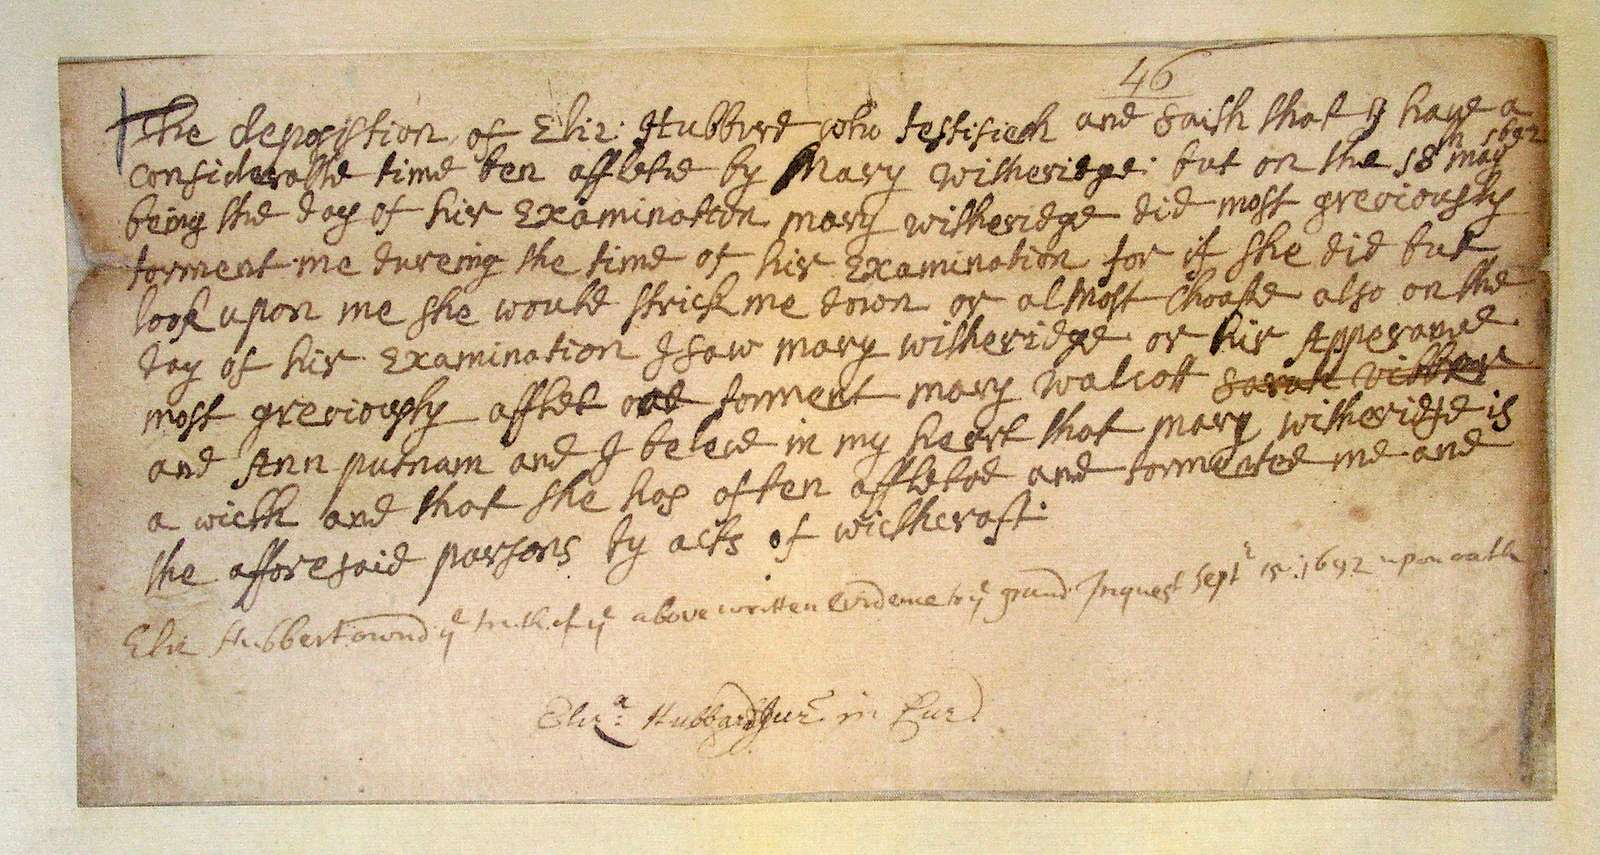 46
The deposistion of Eliz: Hubburd who testifieth and saith that I haue a
considerable time ben afflected by Mary witheridge: but on the 18th may 1692
being the day of hir Examination mary witheridge did most greviously
torment me dureing the time of hir Examination for if she did but
look upon me she would strick me down or almost choake also on the
day of hir Examination I saw mary witheridge or hir Apperance
most greviously afflect and torment mary walcott sarah vibber
and Ann putnam and I beleve in my heart that mary witheridge is
a wicth and that she has often afflected and tormented me and
the afforesaid parsons by acts of wicthcraft:
Eliz Hubbert ownd ye truth of ye above written Evidence to ye grand Inquest Septr 15: 1692 upon oath
Eliza: Hubbard Jur. in Cur.